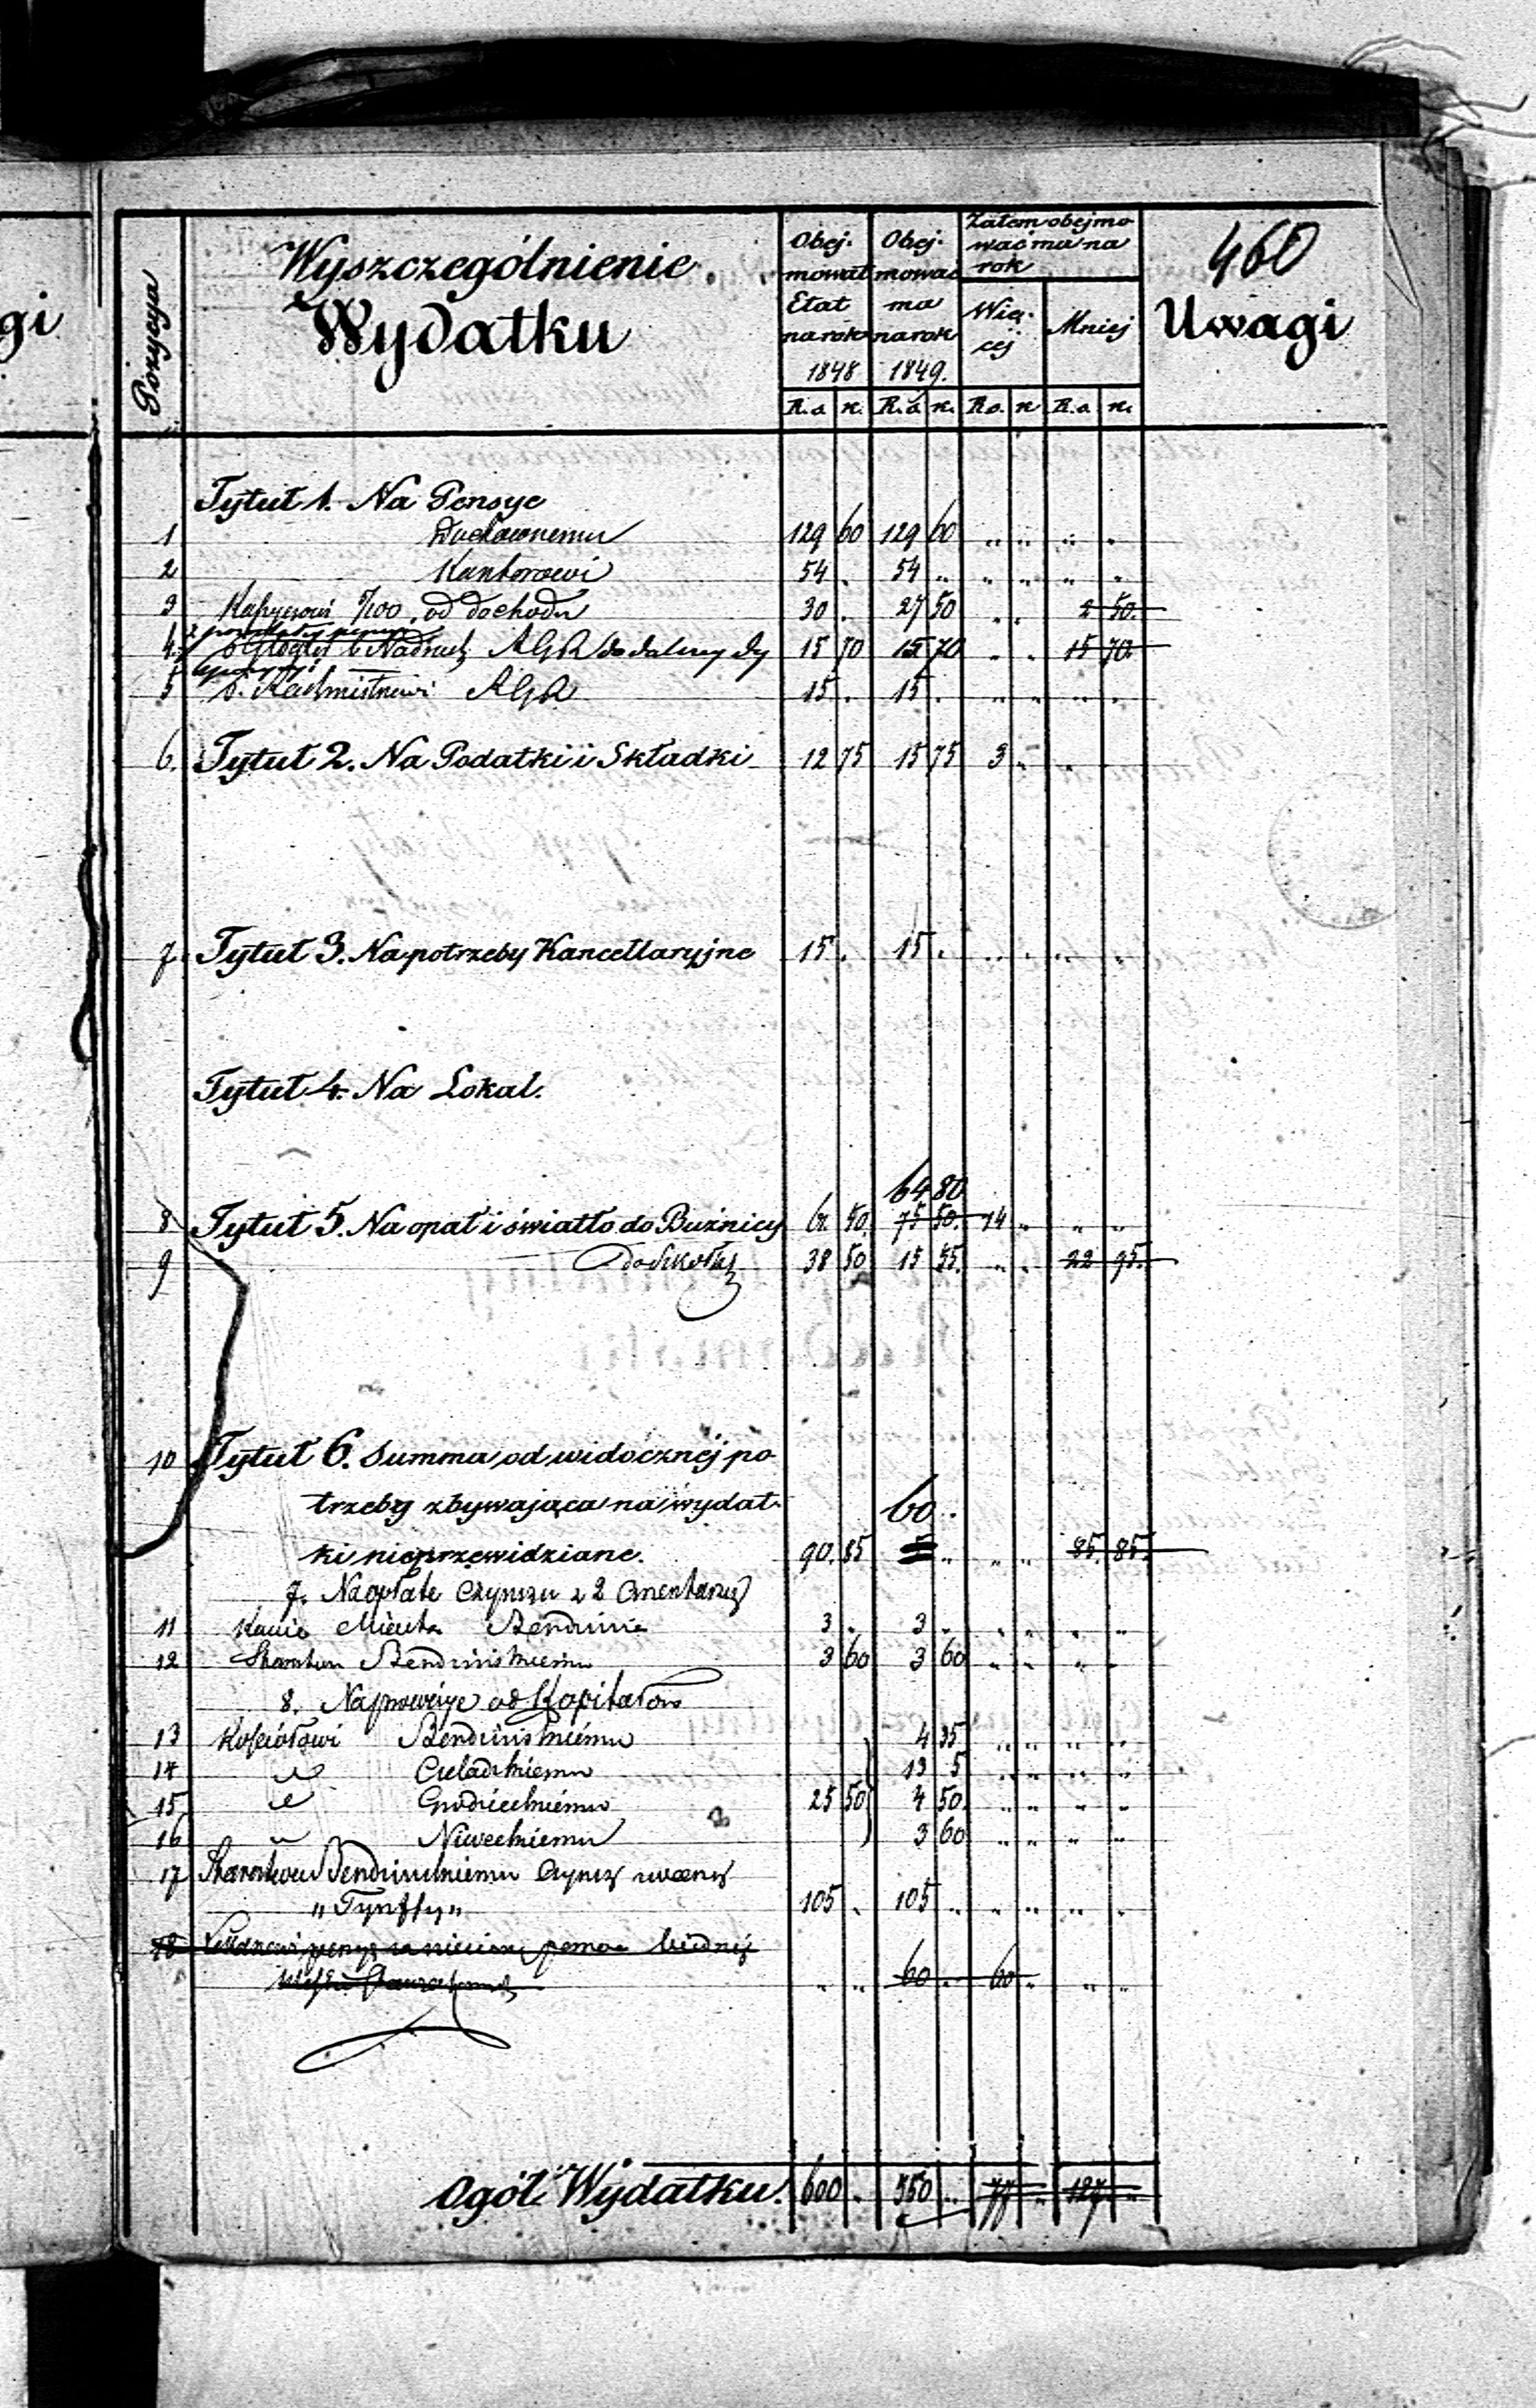 gi
460
Pozycya
Wyszczególnienie
Wydatku
Obej-
mował
Etat
na rok
1848
Obej-
mować
ma
na rok
1849.
Zatem obejmo
wać ma na
rok
Wię-
cej
Mniej
Uwagi
R.s. k. R.s. k. R.s. k. R.s. k.
Tytuł 1. Na Pensye
1 Duchownemu 129 60 129 60 " " " "
2 Kantorowi 54 . 54 " " " " "
3 Kassyerowi /100 od dochodu 30 . 27 50 " " 2 50.
4. AGR do dalszej dy 15 70 15 70 " " 15 70.
5 AGR 15 . 15 . " " " "
6. Tytuł 2. Na Podatki i Składki 12 75 15 75 3 " " "
7 Tytuł 3. Na potrzeby Kancellaryjne 15 . 15 . " " " "
Tytuł 4. Na Lokal.
64 80
8 Tytuł 5. Na opał i światło do Buźnicy 61. 50. 75 50. 14 " " "
9 do Szkoły 38 50 15 55. " " 22 95.
10 Tytuł 6. Summa od widocznéj po
trzeby zbywająca na wydat-
60 .
ki nieprzewidziane. 90. 85 5 " " " 85. 85.
7. Na opłatę Czynszu z 2 Cmentarzy
11 Kassie Miasta Bendzina 3 " 3 " " " " "
12 Bendzińskiemu 3 60 3 60 " " " "
8. Na prowizye od Kapitałów
13 Kościołowi Bendzińskiému 4 35 " " " "
14 " Czeladzkiemu 13 5 " " " "
15 " Grodzieckiému 25 50 4 50. " " " "
16 " Niweckiemu 3 60 " " " "
17 Bendzińskiemu Czynsz zwany
" Tynffy " 105 . 105 " " " " "
18 pomoc biednéj
" " 60 . 60 " " "
Ogół Wydatku. 600 . 550 " 77 " 127 "